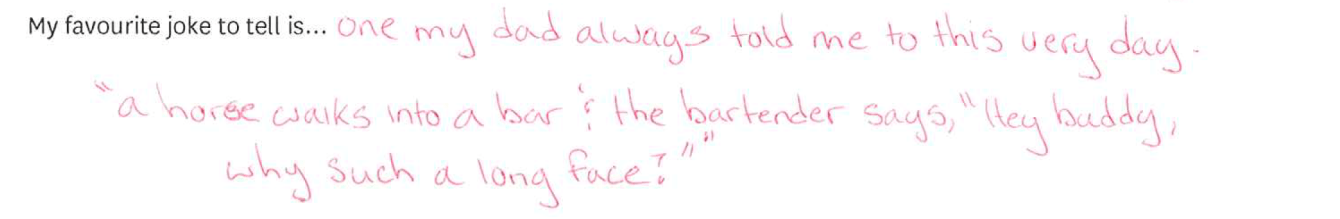 My favourite joke to tell is... one my dad always told me to this very day.
"a horse walks into a bar & the bartender says, "Hey buddy,
why such a long face?""